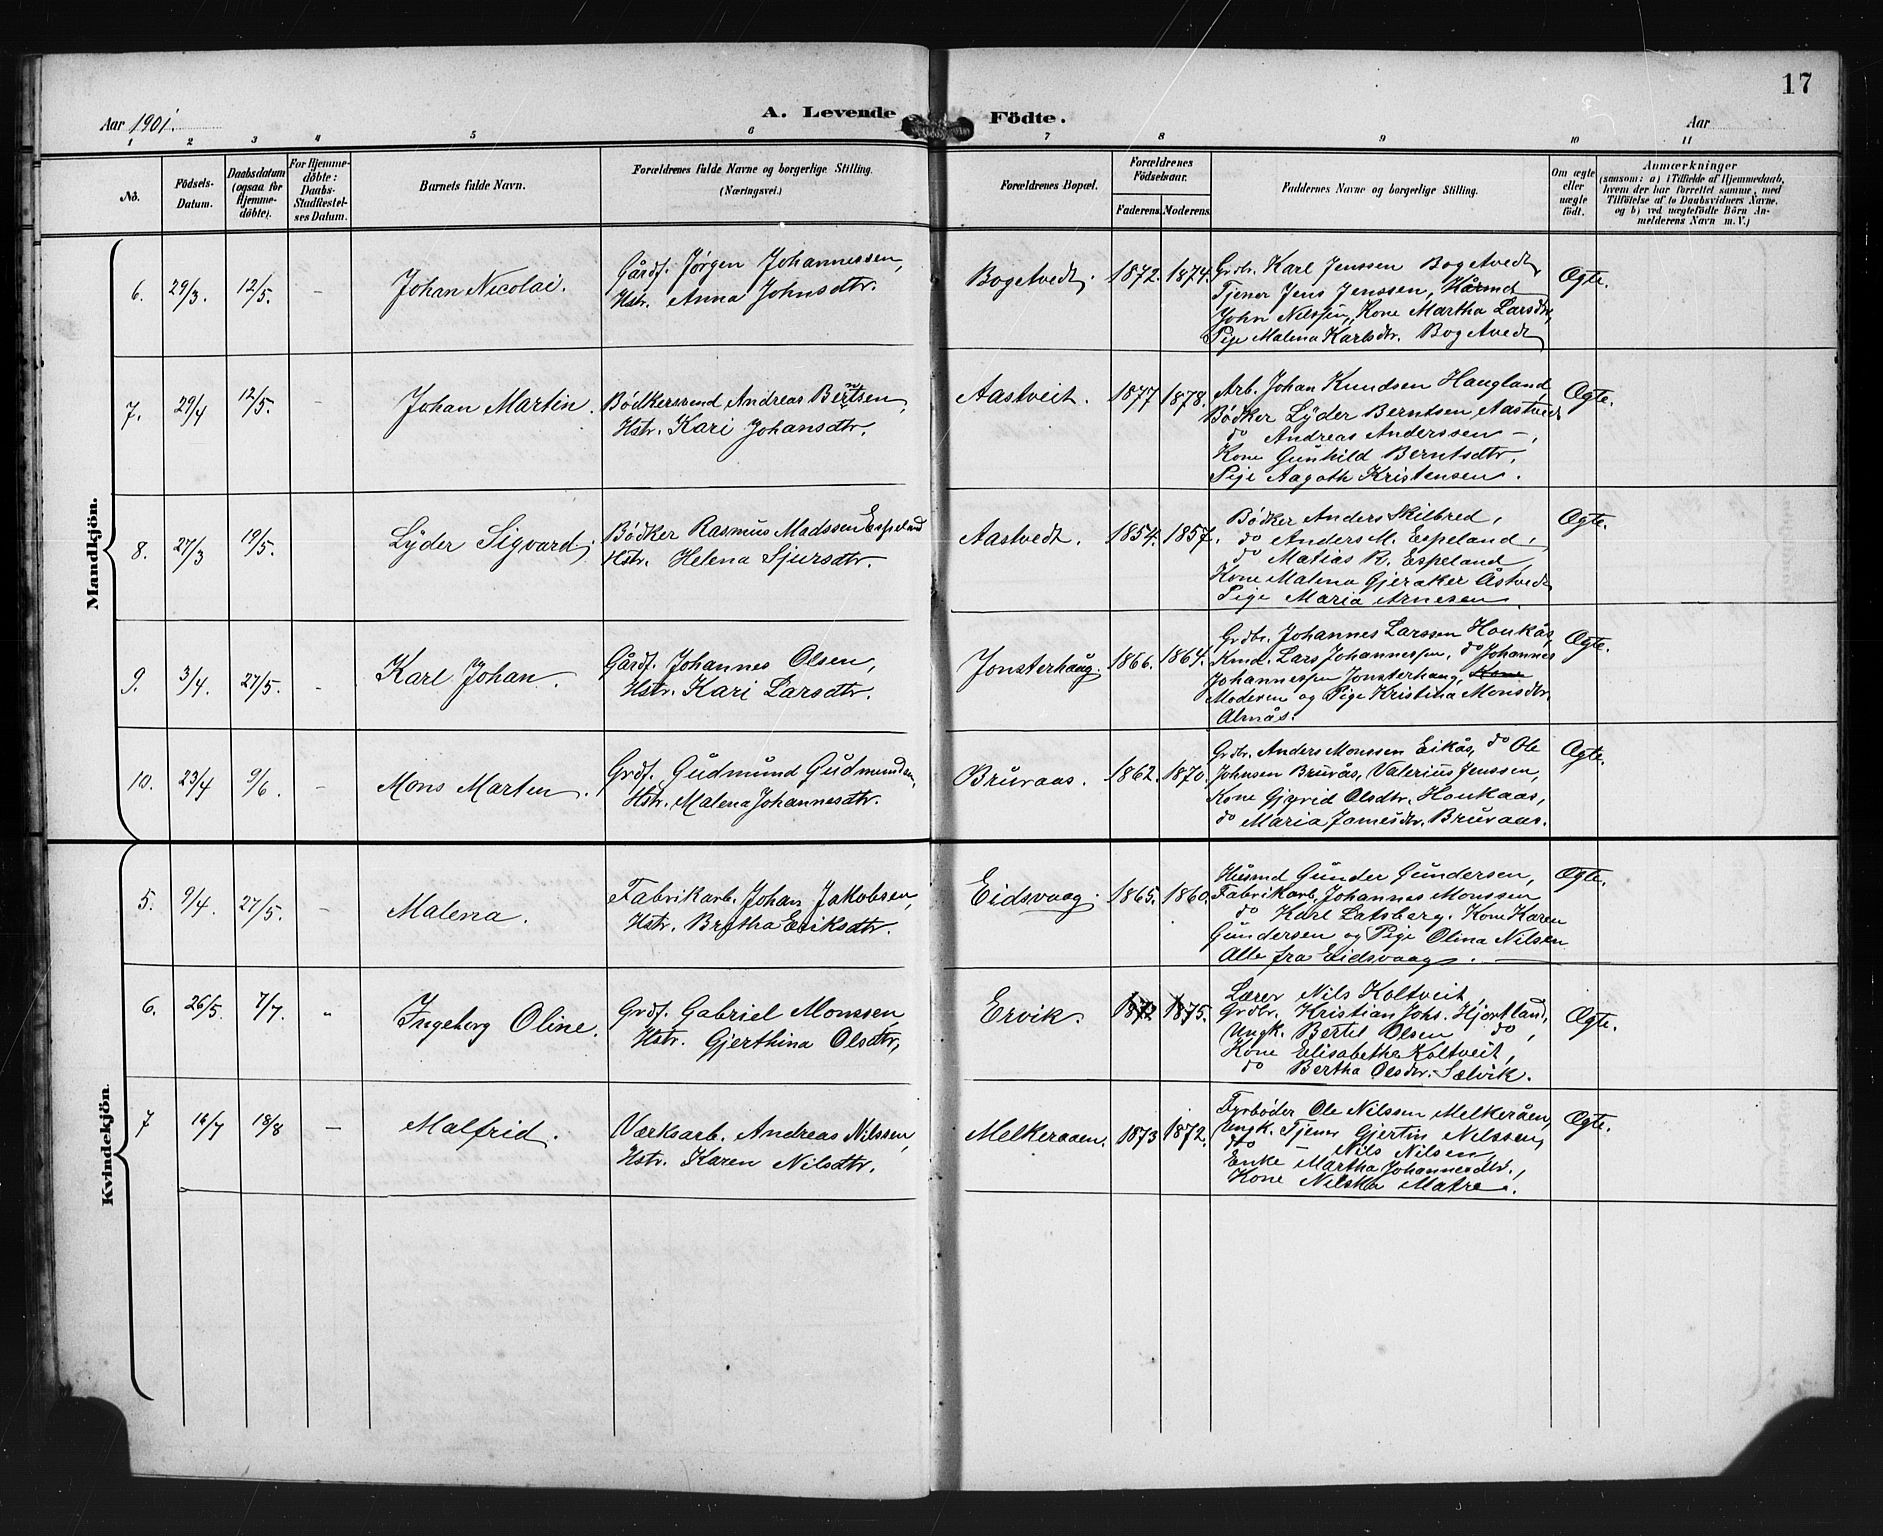 17
Aar 1901.
A. Levende Födte.
Aar
1 2 3 4 5 6 7 8 9 10 11
No.
Födsels-
Datum.
Daabsdatum
(ogsaa for
Hjemme-
döbte).
For Hjemme-
döbte:
Daabs-
Stadfæstel-
ses Datum.
Barnets fulde Navn.
Forældrenes fulde Navne og borgerlige Stilling.
(Næringsvei.)
Forældrenes Bopæl.
Forældrenes
Födselsaar.
Faderens. Moderens.
Faddernes Navne og borgerlige Stilling.
Om ægte
eller
uægte
født.
Anmærkninger
(saasom: a) i Tilfælde af Hjemmedaab,
hvem der har forrettet samme, med
Tilföielse af to Daabsvidners Navne.
og b) ved uægtefödte Börn An-
melderens Navn m. V.)
Mandkjön.
6. 29/3. 12/5. – Johan Nicolai.
Gårdf. Jørgen Johannessen,
Hstr. Anna Johnsdtr.
Bogetvedt. 1872. 1874.
Grdbr. Karl Jenssen Bogetvedt,
Tjener Jens Jenssen,
John Nilssen, Kone Martha Larsdtr,
Pige Malena Karlsdtr. Bogetvedt
Ægte.
7. 29/4 12/5. – Johan Martin.
Bødkersvend Andreas Berntsen,
Hstr. Kari Johansdtr.
Aastveit. 1877 1878.
Arb. Johan Knudsen Haugland,
Bødker Lyder Berntsen Aastvedt
do Andreas Anderssen –,
Kone Gunhild Berntsdtr,
Pige Aagoth Kristensen.
Ægte.
8. 27/3 19/5. Lyder Sigvard,
Bødker Rasmus Madssen Espeland
Hstr. Helena Sjursdtr.
Aastvedt. 1854. 1857.
Bødker Anders Skilbred,
do Anders M. Espeland,
do Matias R. Espeland,
Kone Malena Gjeraker Åstvedt
Pige Maria Arnesen.
Ægte.
9. 3/4. 27/5. – Karl Johan.
Gårdf. Johannes Olsen,
Hstr. Kari Larsdtr.
Jonsterhaug. 1866. 1864.
Grdbr. Johannes Larssen Houkås,
Lars Johannessen, do Johannes
Johannessen Jonsterhaug, Kone
Moderen og Pige Kristina Monsdtr.
Almås.
Ægte.
10. 23/4 9/6. – Mons Martin.
Grdf. Gudmund Gudmundsen,
Hstr. Malena Johannesdtr.
Bruraas. 1862. 1870.
Grdbr. Anders Monssen Eikås, do Ole
Johnsen Brurås, Valerius Jenssen,
Kone Gjyrid Olsdtr. Houkaas,
do Maria Jamesdtr. Bruraas.
Ægte.
Kvindekjön.
5. 9/4. 27/5. – Malena.
Fabrikarb. Johan Jakobsen,
Hstr. Brytha Eriksdtr.
Eidsvaag. 1865. 1860.
Husmd Gunder Gundersen,
Fabrikarb. Johannes Monssen
do Karl Latsberg. Kone Karen
Gundersen og Pige Olina Nilsen
Alle fra Eidsvaag.
Ægte.
6. 26/5. 7/7. „ Ingeborg Oline.
Grdf. Gabriel Monssen
Hstr. Gjerthina Olsdtr,
Ervik. 1872 1875.
Lærer Nils Koltveit,
Grdbr. Kristian Johs. Hjortland,
Ungk. Bertel Olsen do,
Kone Elisabetha Koltveit,
do Bertha Olsdtr. Sælvik.
Ægte.
7 16/7 18/8 – Malfrid.
Værksarb. Andreas Nilssen,
Hstr. Karen Nilsdtr.
Melkeraaen. 1873 1872.
Fyrbøder Ole Nilssen Melkeråen,
Ungk. Tjener Gjertin Nilssen,
do – Nils Nilsen,
Enke Martha Johannesdtr.,
Kone Matre.
Ægte.